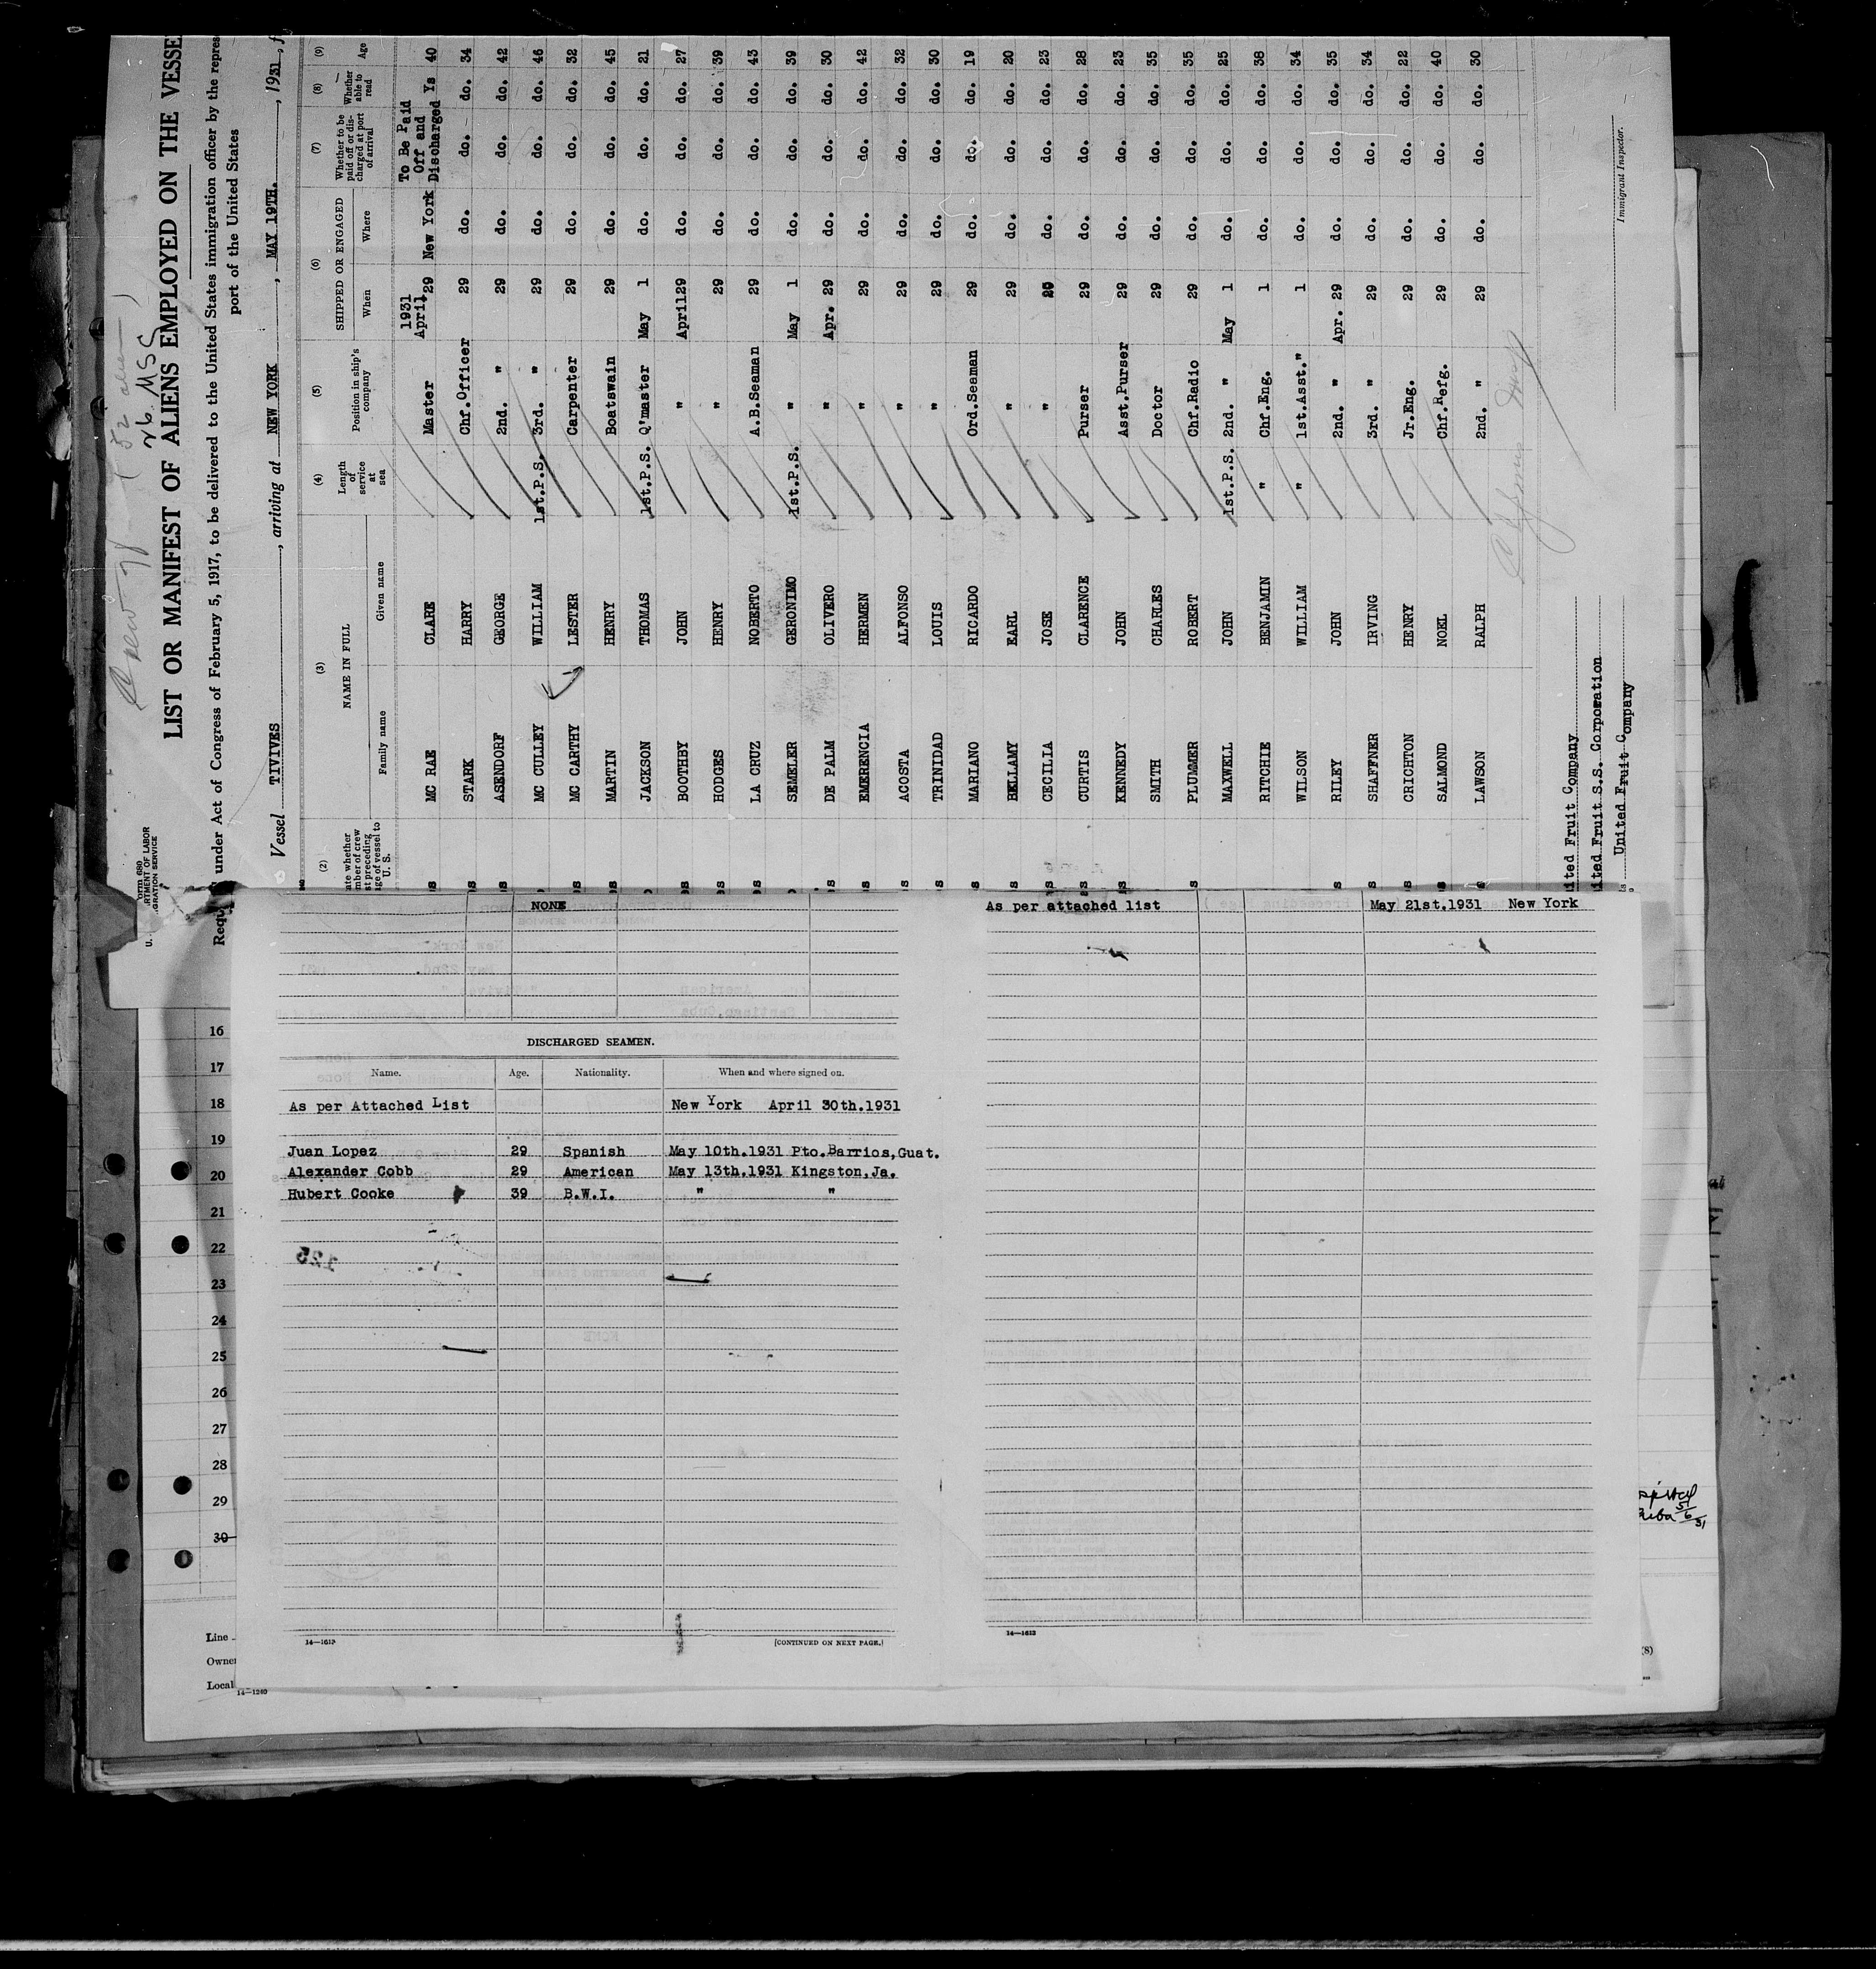 Crew 78 ( 52 alien )
26 MSC
LIST OR MANIFEST OF ALIENS EMPLOYED ON THE VESSE
under Act of Congress of February 5, 1917, to be delivered to the United States immigration officer by the repres
port of the United States
Vessel TIVIVES, arriving at NEW YORK, MAY 19TH., 1931, f
(2) (3) (4) (5) (6) (7) (8) (9)
NAME IN FULL
Family name Given name
Length of service at sea
Position in ship's company
SHIPPED OR ENGAGED
When Where
Whether to be paid off or discharged at port of arrival
Whether able to read
Age
1931 To Be Paid Off and
MC RAE CLARE Master April 29 New York Discharged Ys 40
STARK HARRY Chf.Officer 29 do. do. do. 34
ASENDORF GEORGE 2nd. " 29 do. do. do. 42
MC CULLEY WILLIAM 1st.P.S. 3rd. " 29 do. do. do. 46
MC CARTHY LESTER Carpenter 29 do. do. do. 32
MARTIN HENRY Boatswain 29 do. do. do. 45
JACKSON THOMAS 1st.P.S. Q'master May 1 do. do. do. 21
BOOTHBY JOHN " April29 do. do. do. 27
HODGES HENRY " 29 do. do. do. 39
LA CRUZ NOBERTO A.B.Seaman 29 do. do. do. 43
SEMELER GERONIMO 1st.P.S. " May 1 do. do. do. 39
DE PALM OLIVERO " Apr. 29 do. do. do. 30
EMERENCIA HERMEN " 29 do. do. do. 42
ACOSTA ALFONSO " 29 do. do. do. 32
TRINIDAD LOUIS " 29 do. do. do. 30
MARIANO RICARDO Ord.Seaman 29 do. do. do. 19
BELLAMY EARL " 29 do. do. do. 20
CECILIA JOSE " 29 do. do. do. 23
CURTIS CLARENCE Purser 29 do. do. do. 28
KENNEDY JOHN Asst.Purser 29 do. do. do. 23
SMITH CHARLES Doctor 29 do. do. do. 35
PLUMMER ROBERT Chf.Radio 29 do. do. do. 35
MAXWELL JOHN 1st.P.S. 2nd. " May 1 do. do. do. 25
RITCHIE BENJAMIN " Chf.Eng. 1 do. do. do. 38
WILSON WILLIAM " 1st.Asst." 1 do. do. do. 34
RILEY JOHN 2nd. " Apr. 29 do. do. do. 35
SHAFFNER IRVING 3rd. " 29 do. do. do. 34
CRICHTON HENRY Jr.Eng. 29 do. do. do. 22
SALMOND NOEL Chf.Refg. 29 do. do. do. 40
LAWSON RALPH 2nd. " 29 do. do. do. 30
ited Fruit Company
ited Fruit S.S. Corporation
United Fruit Company
Immigrant Inspector.
NONE
DISCHARGED SEAMEN.
Name. Age. Nationality. When and where signed on.
As per Attached List New York April 30th.1931
Juan Lopez 29 Spanish May 10th.1931 Pto.Barrios,Guat.
Alexander Cobb 29 American May 13th.1931 Kingston,Ja.
Hubert Cooke 39 B.W.I. " "
125
14—1613
[CONTINUED ON NEXT PAGE.]
As per attached list May 21st.1931 New York
14—1613
16
17
18
19
20
21
22
23
24
25
26
27
28
29
30
Line
Owner
Local
14—1240